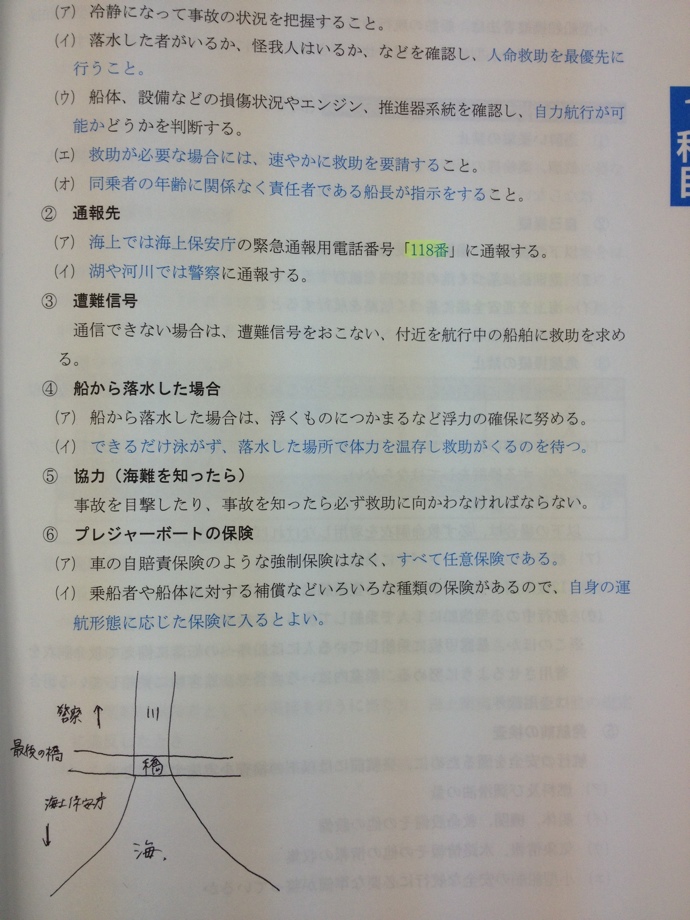 (ア) 冷静になって事故の状況を把握すること。
(イ) 落水した者がいるか、怪我人はいるか、などを確認し、人命救助を最優先に
行うこと。
(ウ) 船体、設備などの損傷状況やエンジン、推進器系統を確認し、自力航行が可
能かどうかを判断する。
(エ) 救助が必要な場合には、速やかに救助を要請すること。
(オ) 同乗者の年齢に関係なく責任者である船長が指示をすること。
② 通報先
(ア) 海上では海上保安庁の緊急通報用電話番号「118番」に通報する。
(イ) 湖や河川では警察に通報する。
③ 遭難信号
通信できない場合は、遭難信号をおこない、付近を航行中の船舶に救助を求め
る。
④ 船から落水した場合
(ア) 船から落水した場合は、浮くものにつかまるなど浮力の確保に努める。
(イ) できるだけ泳がず、落水した場所で体力を温存し救助がくるのを待つ。
⑤ 協力（海難を知ったら）
事故を目撃したり、事故を知ったら必ず救助に向かわなければならない。
⑥ プレジャーボートの保険
(ア) 車の自賠責保険のような強制保険はなく、すべて任意保険である。
(イ) 乗船者や船体に対する補償などいろいろな種類の保険があるので、自身の運
航形態に応じた保険に入るとよい。
警察 ↑
川
最後の橋
橋
海上保安庁
↓
海.
科目